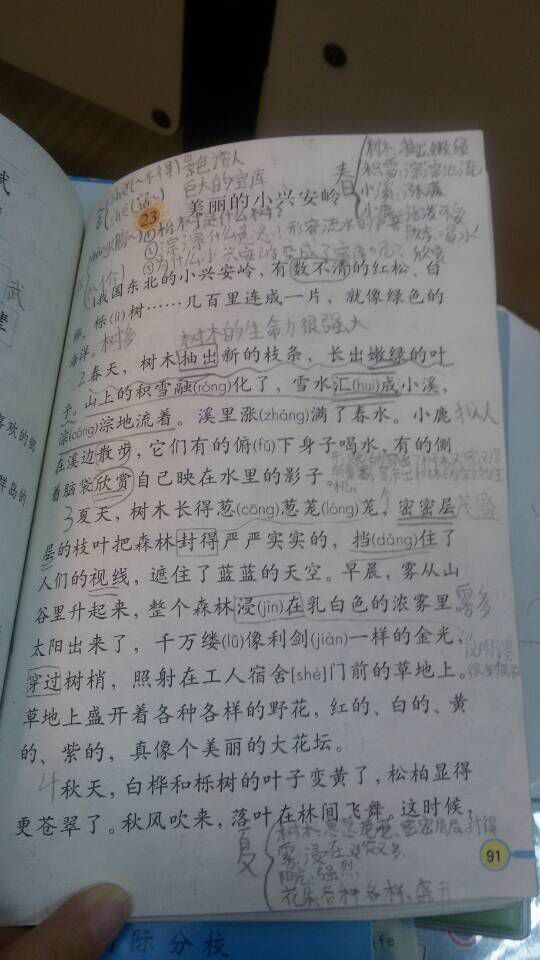 景色诱人
巨大的宝库
23 美丽的小兴安岭
春
树木:抽出嫩绿
积雪:
小溪:涨满
我国东北的小兴安岭,有数不清的红松、白
桦、栎(lì)树……几百里连成一片,就像绿色的
海洋。树多
树木的生命力很强大
2春天,树木抽出新的枝条,长出嫩绿的叶
子。山上的积雪融(róng)化了,雪水汇(huì)成小溪,
淙(cóng)淙地流着。溪里涨(zhǎng)满了春水。小鹿
拟人
在溪边散步,它们有的俯(fǔ)下身子喝水,有的侧
着脑袋欣赏自己映在水里的影子。
3夏天,树木长得葱(cōng)葱茏(lóng)茏,密密层
茂盛
层的枝叶把森林封得严严实实的,挡(dǎng)住了
人们的视线,遮住了蓝蓝的天空。早晨,雾从山
谷里升起来,整个森林浸(jìn)在乳白色的浓雾里。
雾多
太阳出来了,千万缕(lǚ)像利剑(jiàn)一样的金光,
穿过树梢,照射在工人宿舍[shè]门前的草地上。
草地上盛开着各种各样的野花,红的、白的、黄
的、紫的,真像个美丽的大花坛。
4秋天,白桦和栎树的叶子变黄了,松柏显得
更苍翠了。秋风吹来,落叶在林间飞舞。这时候,
夏
树木:葱葱茏茏 密密层层 封得
雾:浸在
阳光:强烈
花朵各种各样,盛开
91
际分校
life